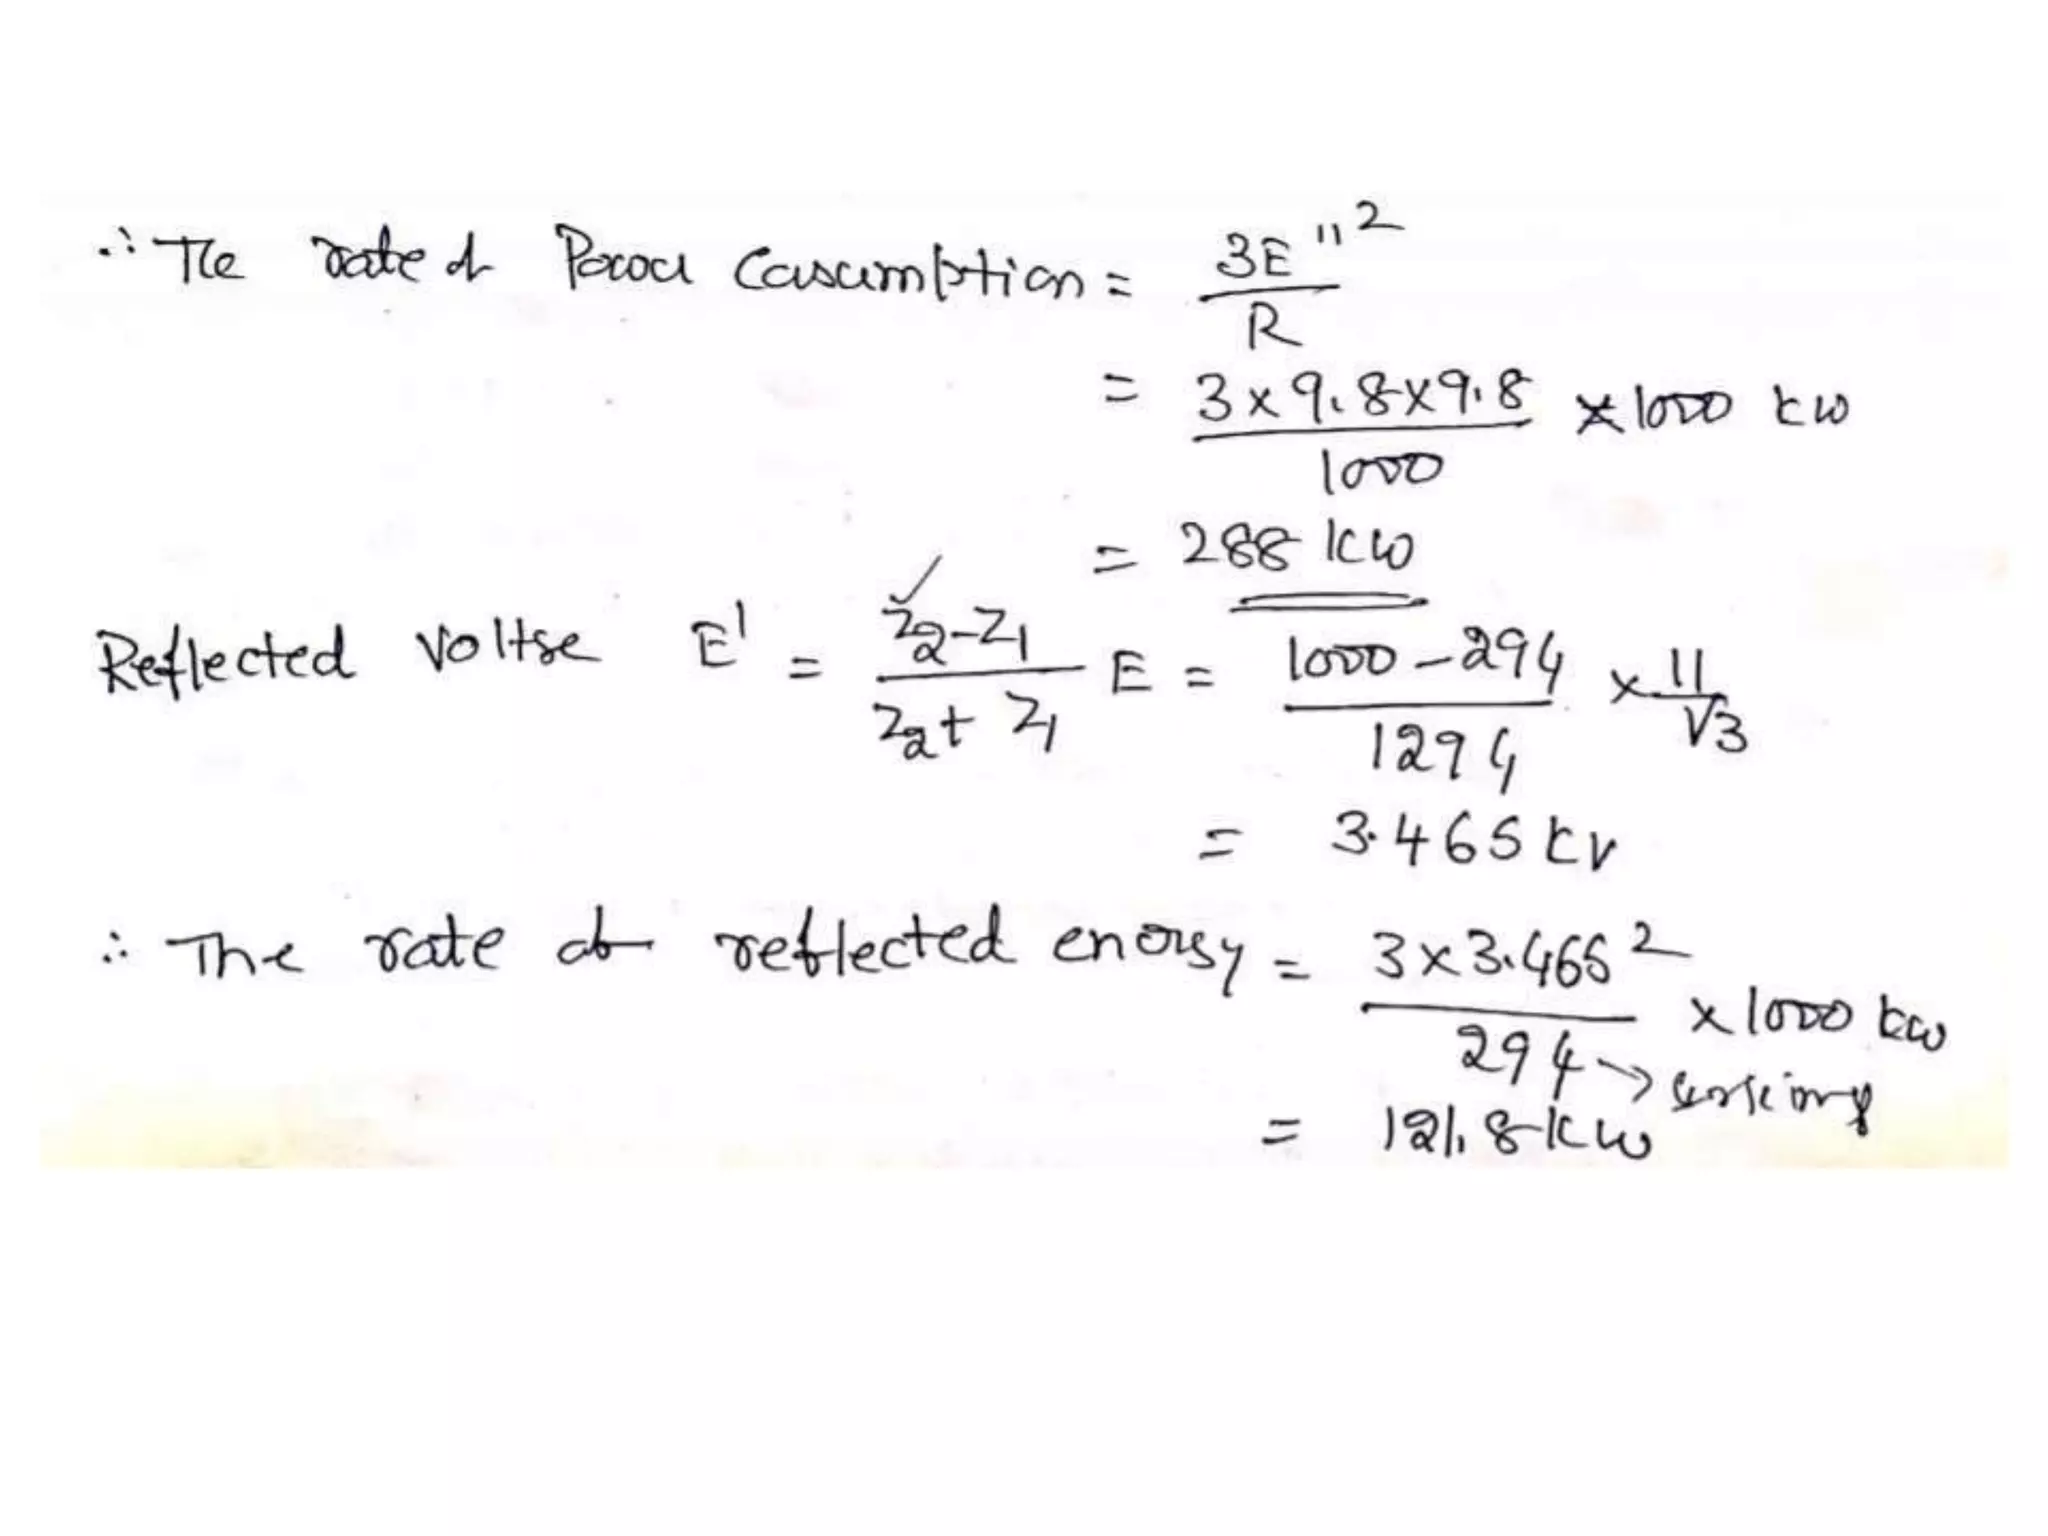 ∴ The rate of Power Consumption = 3E''² / R
= 3 x 9.8 x 9.8 / 1000 x 1000 kw
= 288 kw
Reflected Voltge E' = Z2 - Z1 / Z2 + Z1 E = 1000 - 294 / 1294 x 11 / √3
= 3.465 kv
∴ The rate of reflected energy = 3 x 3.465² / 294 x 1000 kw
= 121.8 kw